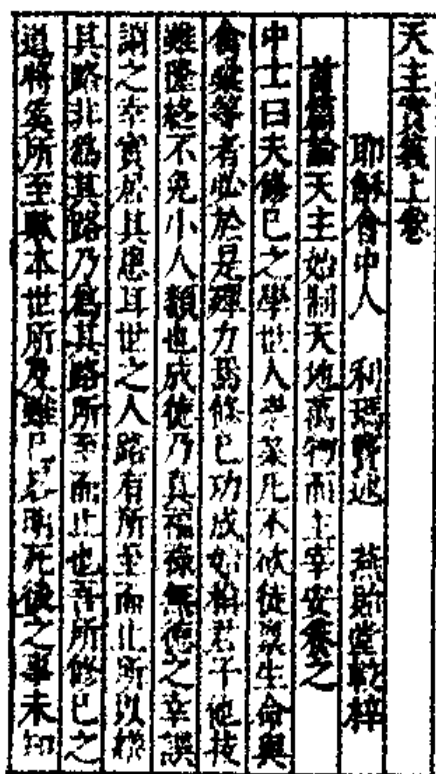 天主實義上卷
耶穌會中人 利瑪竇述 燕貽堂較梓
首篇論天主始制天地萬物而主宰安養之
中士曰夫修己之學世人崇業凡不欲徒稟生命與
禽彙等者必於是殫力焉修己功成始稱君子他技
雖隆終不免小人類也成德乃真福祿無德之幸誤
謂之幸實居其患耳世之人路有所至而止所以繕
其路非為其路乃為其路所至而止也吾所修己之
道將奚所至歟本世所及雖已畧明死後之事未知